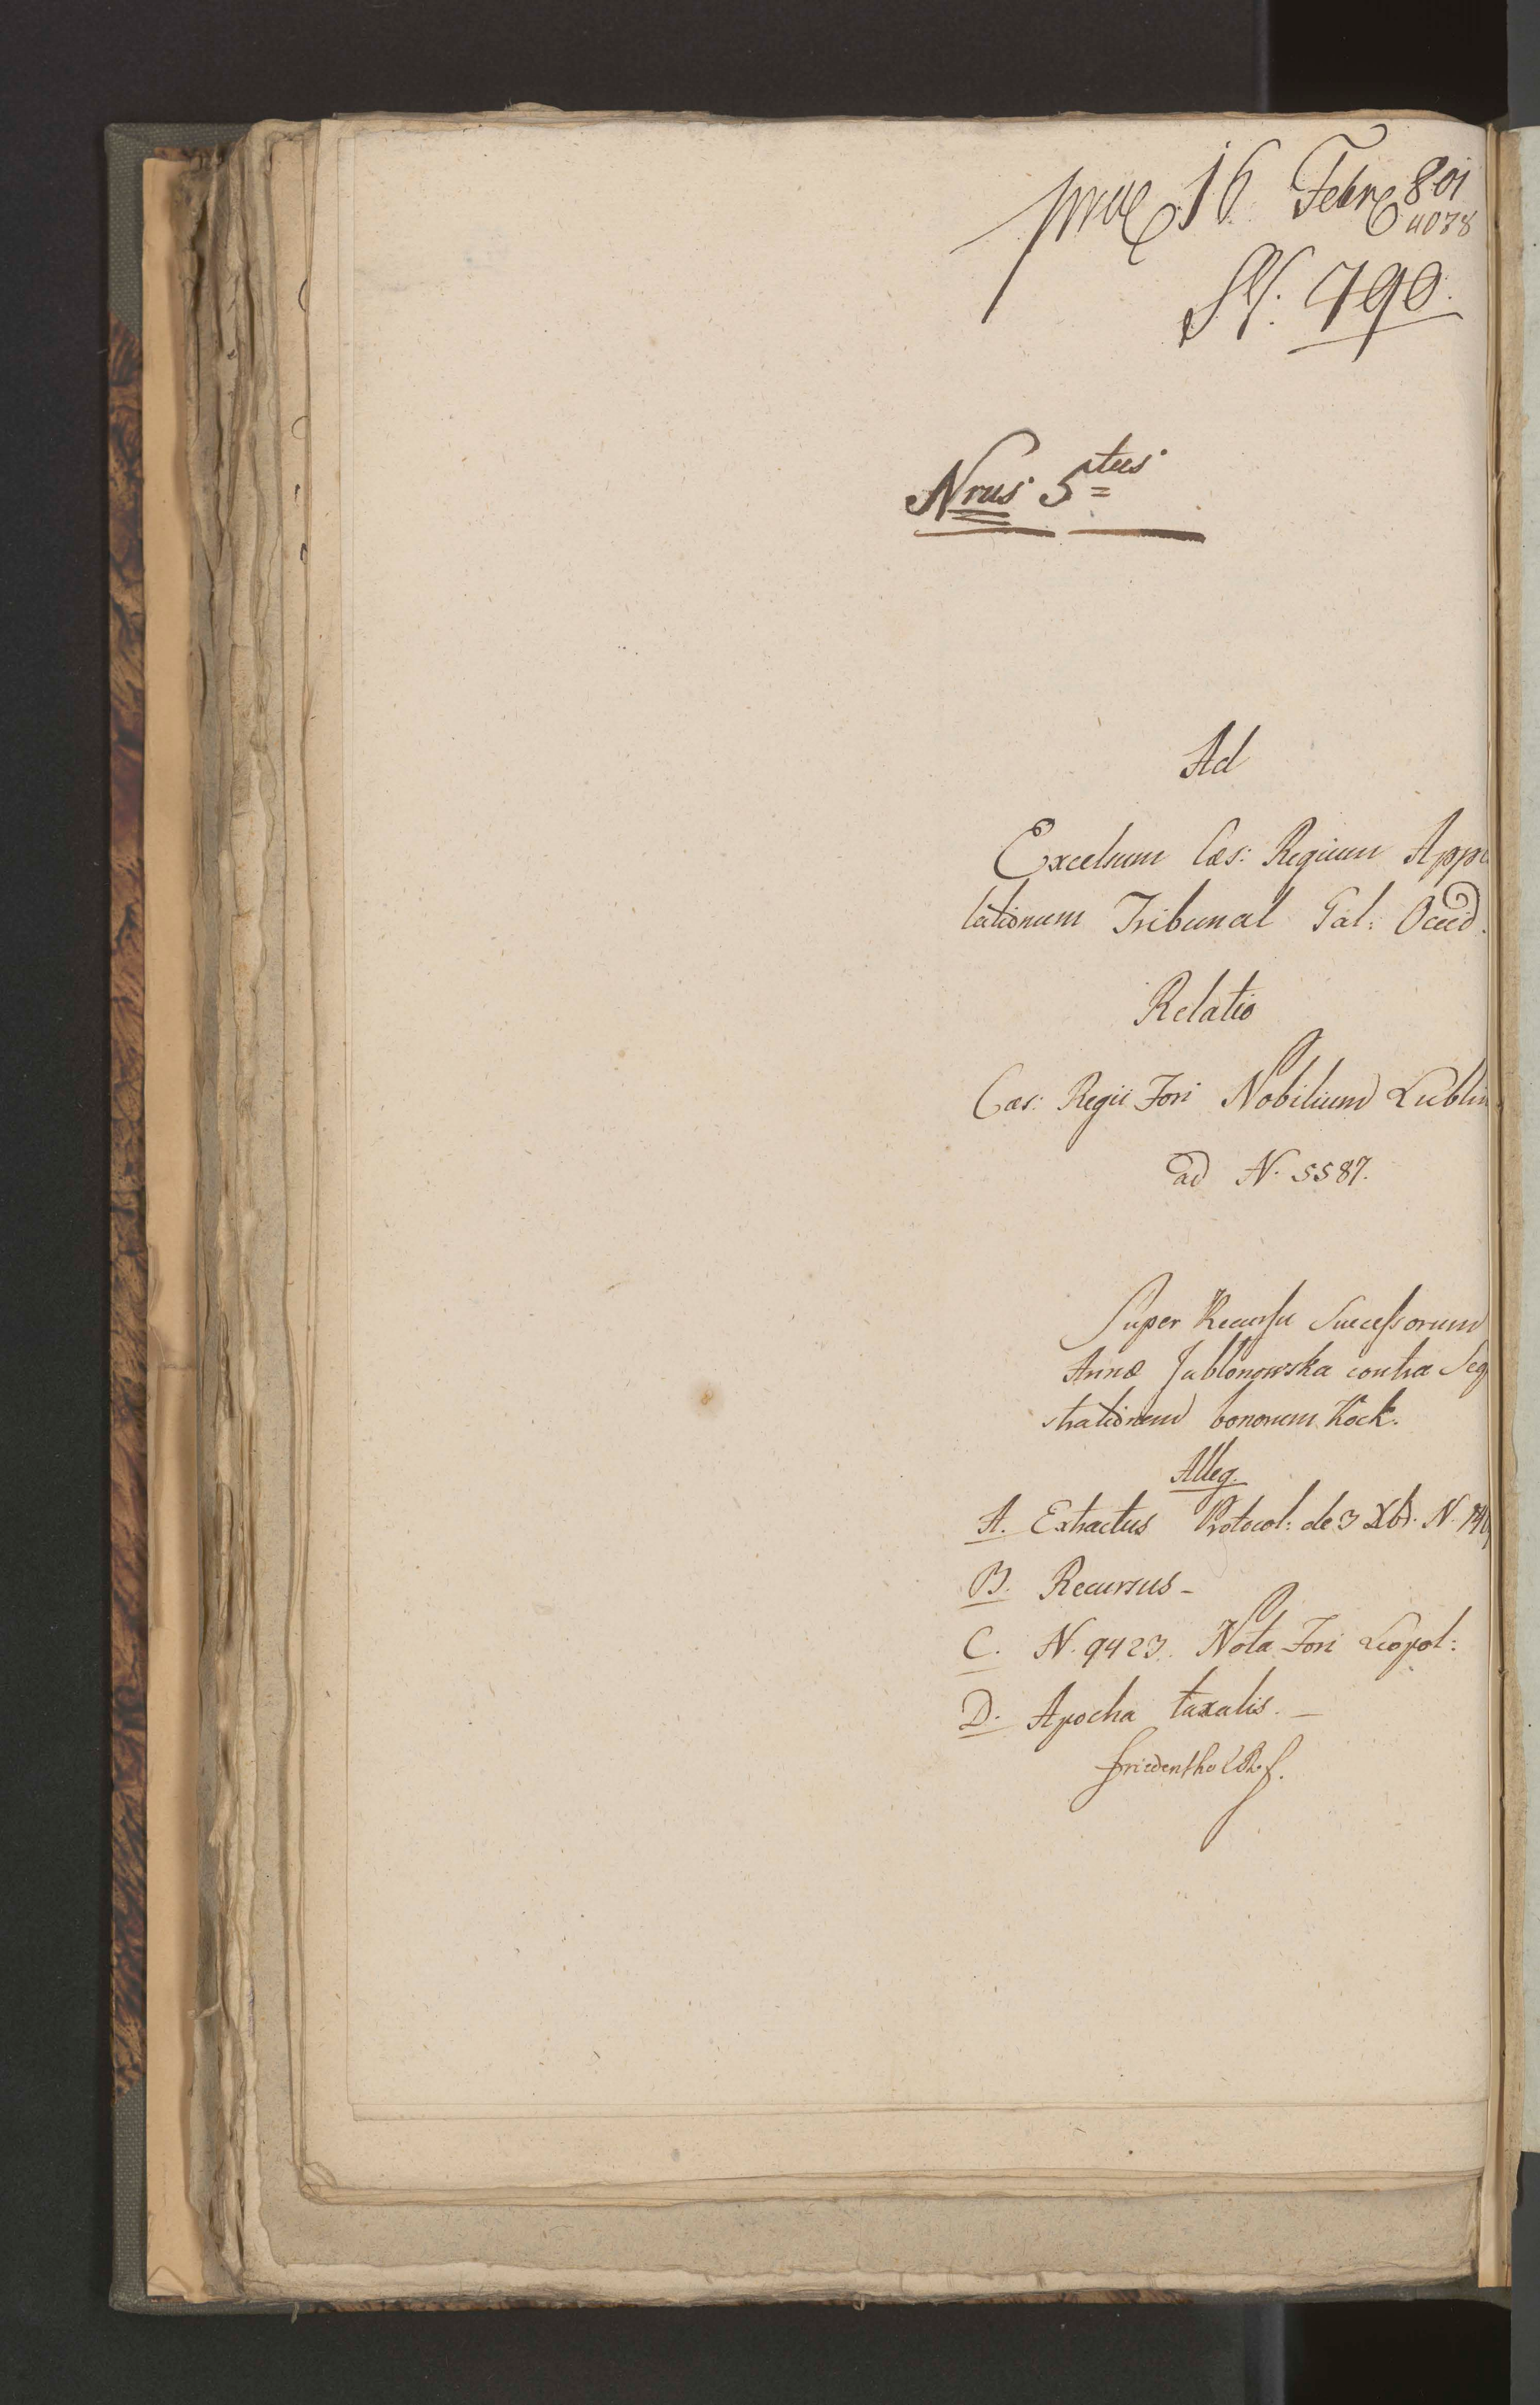 16 Febr 801
4078
790.
Nrus 5tus
Ad
Excelsum Cæs: Regium Appe
lationum Tribunal Gal: Occid.
Relatio
Cæs: Regii Fori Nobilium Lublin
ad N. 5587.
Super Recursu Successorum
Annæ Jablonowska contra Seq
strationem bonorum Kock.
Alleg.
A. Extractus Protocol: de 3 Xbr. N.
B. Recursus -
C. N. 9423. Nota Fori Leopol:
D. Apocha taxalis. -